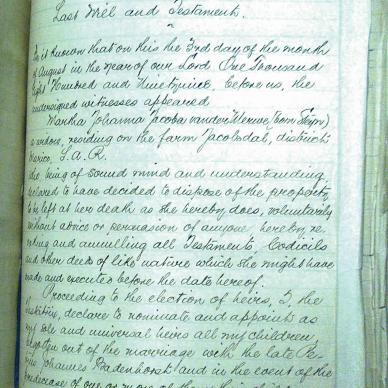 Last Will and Testament.
Be it known that on this the 3rd day of the month
of August in the year of our Lord One Thousand
Eight Hundred and Ninetynine, before us, the
undersigned witnesses appeared
Martha Johanna Jacoba van der Merwe, (born Steyn)
a widow, residing on the farm Jacobsdal, district
Marico, Z.A.R.
she being of sound mind and understanding,
declared to have decided to dispose of the property
to be left at her death as she hereby does, voluntarily
without advice or persuasion of anyone hereby re-
voking and annulling all Testaments, Codicils
and other deeds of like nature which she might have
made and executed before the date hereof.
Proceeding to the election of heirs, I, the
testatrix, declare to nominate and appoint as
my sole and universal heirs all my children,
begotten out of the marriage with the late
Johannes Badenhorst and in the event of the
predecease of one or more of them